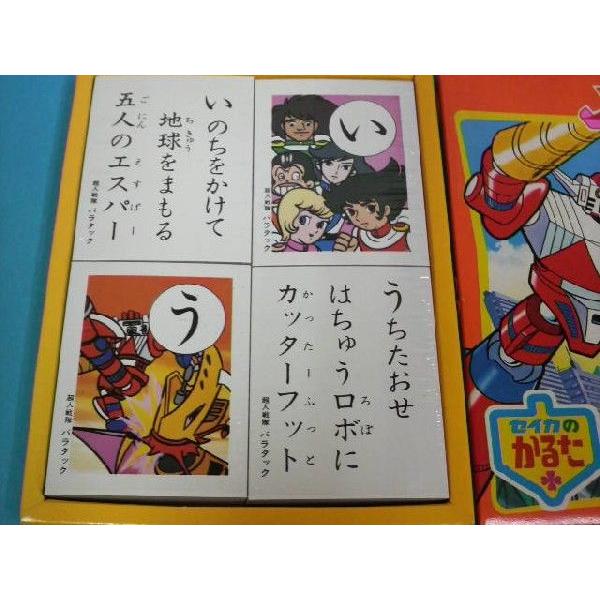 いのちをかけて
地球をまもる
ちきゅう
五人のエスパー
ごにん えすぱー
超人戦隊 バラタック
い
超人戦隊 バラタック
う
超人戦隊 バラタック
うちたおせ
はちゅうロボに
ろぼ
カッターフット
かったーふっと
超人戦隊 バラタック
セイカの
かるた